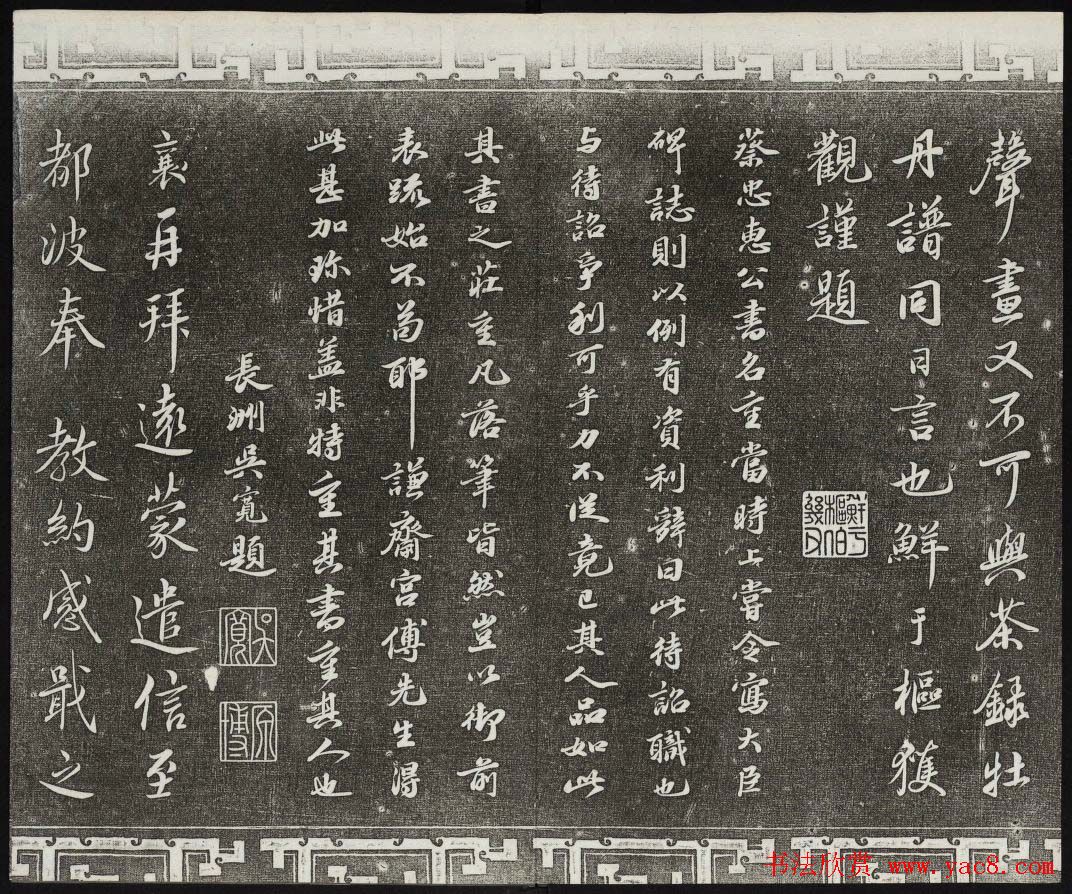 聲畫又不可與茶録牡
丹譜同日言也鮮于樞獲
觀謹題
鮮于樞伯幾父
蔡忠惠公書名重當時上嘗令寫大臣
碑誌則以例有資利辭曰此待詔職也
与待詔爭利可乎力不從竟已其人品如此
其書之莊重凡落筆皆然豈以御前
表疏始不苟耶謙齋宮傅先生得
此甚加珎惜盖非特重其書重其人也
長洲吳寬題
吳寬
原博
襄再拜遠蒙遣信至
都波奉 教約感戢之
书法欣赏 www.yac8.com